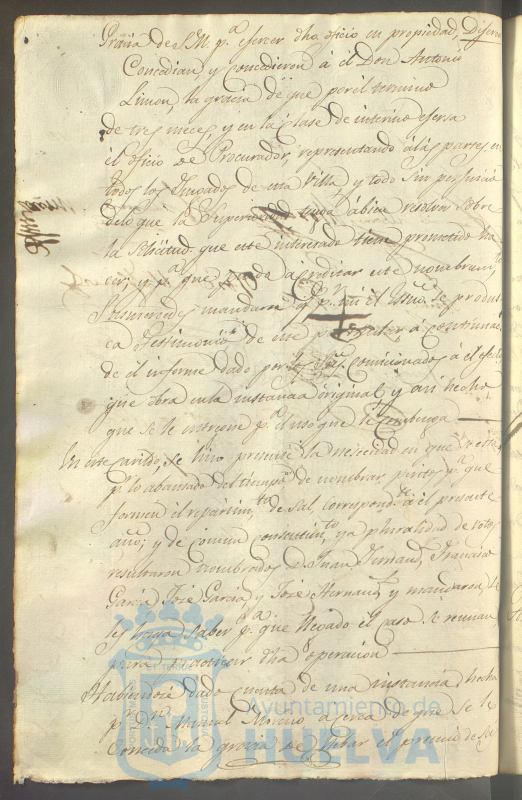 Gracia de S.M. p.ª ejercer dho oficio en propiedad, Dijeron
Concedian y concedieron á el Don Antonio
Limon, la gracia de que por el termino
de tres meces y en la clase de interino ejersa
el oficio de Procurador, representando á las partes en
todos los Jusgados de esta Villa, y todo sin perjuicio
delo que la Superioridad tenga á bien resolver sobre
la Solicitud que este interesado tiene prometido ha
cer; y p.ª que pueda acreditar este nombram.to
Sus mercedes mandaron q.e p.r mi el Ess.no se produs
ca Testimonio de este particular, á continuac.n
de el informe dado por los S.res comicionados á el efecto
que obra en la instancia original, y asi hecho
que se le entregue p.ª el uso que le combenga
En este cavildo, se hizo presente la nesecidad en que se está
p.r lo abansado del tiempo de nombrar peritos p.ª que
formen el repartim.to de Sal, correspond.te á el presente
año; y de comun consentim.to, y a pluralidad de votos
resultaron nombrados D. Juan Fernand.z Francisco
Garcia José Garcia y José Hernand.z y mandaron se
les haga saber p.ª que llegado el caso se reunan
para practicar dha operacion
Habiendose dado cuenta de una instancia hecha
p.r D.n Manuel Moreno acerca de que se le
Conceda la gracia de el
Ayuntamiento de
HUELVA